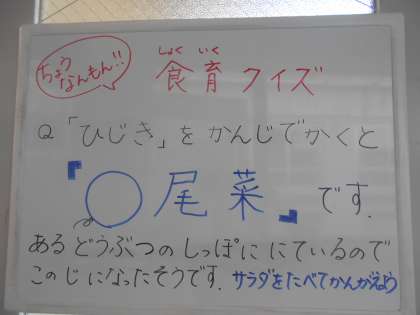 ちょう
なんもん!!
しょく いく
食育クイズ
Q「ひじき」をかんじでかくと
『◯尾菜』です.
あるどうぶつのしっぽににているので
このじになったそうです. サラダをたべてかんがえよう